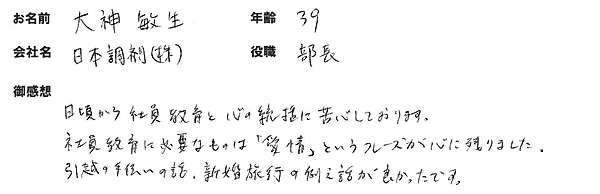 お名前 大神 敏生 年齢 39
会社名 日本調剤(株) 役職 部長
御感想
日頃から社員教育と心の統括に苦心しております。
社員教育に必要なものは「愛情」というフレーズが心に残りました。
引越の手伝いの話、新婚旅行の例え話が良かったです。